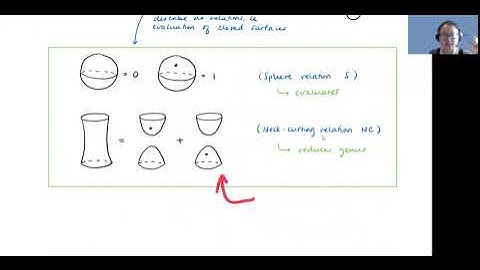 describe as relations, ie
evaluation of closed surfaces
= 0
= 1
(Sphere relation S)
↳ evaluates
=
+
(Neck-cutting relation NC)
↳ reduces genus